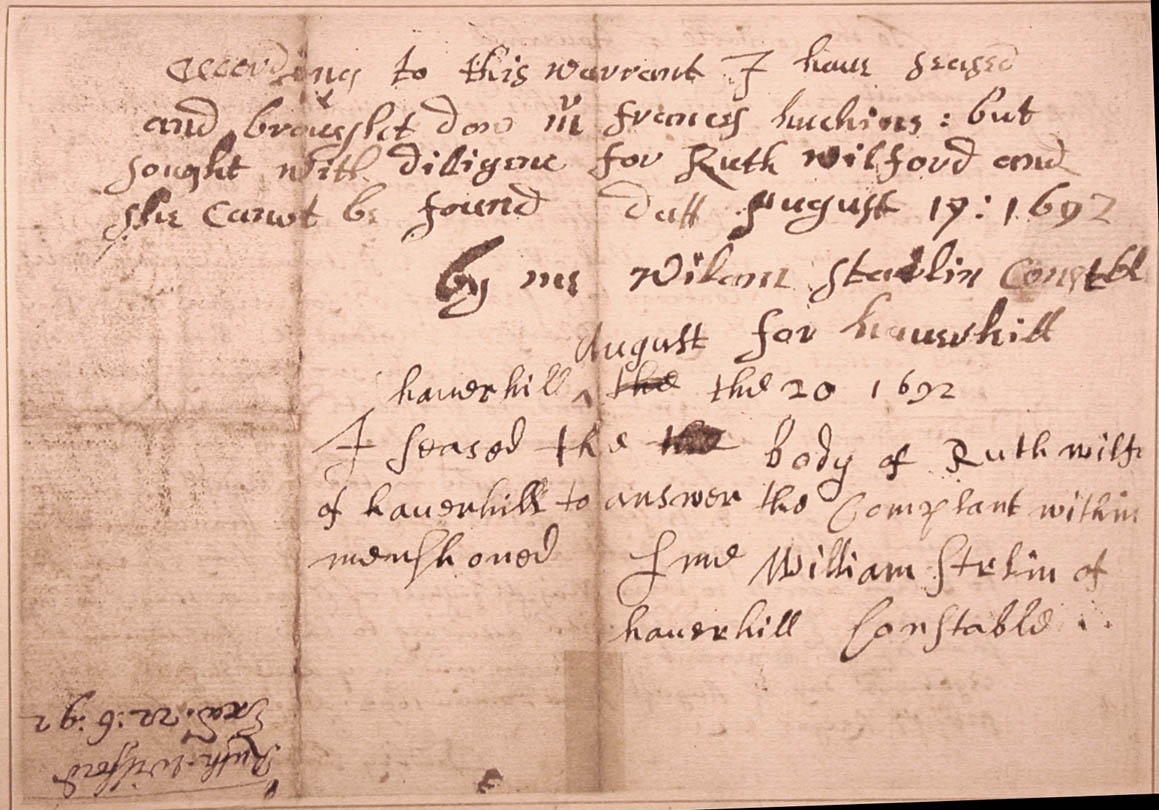 according to this warrant I haue seased
and brought dow m^rs frences huchins : but
sought with dilligenc for Ruth wilford and
she canot be found datt August 19 : 1692
by me Wiliam Starlin Constbl
for hauerhill
hauerhill ^ August the the 20 1692
I seased the the body of Ruth wilf
of hauerhill to answer the Complant within
menshoned p me William Strlin of
hauerhill Constable
Ruth Wilford
Exa͞d : 22 : 6 : 92